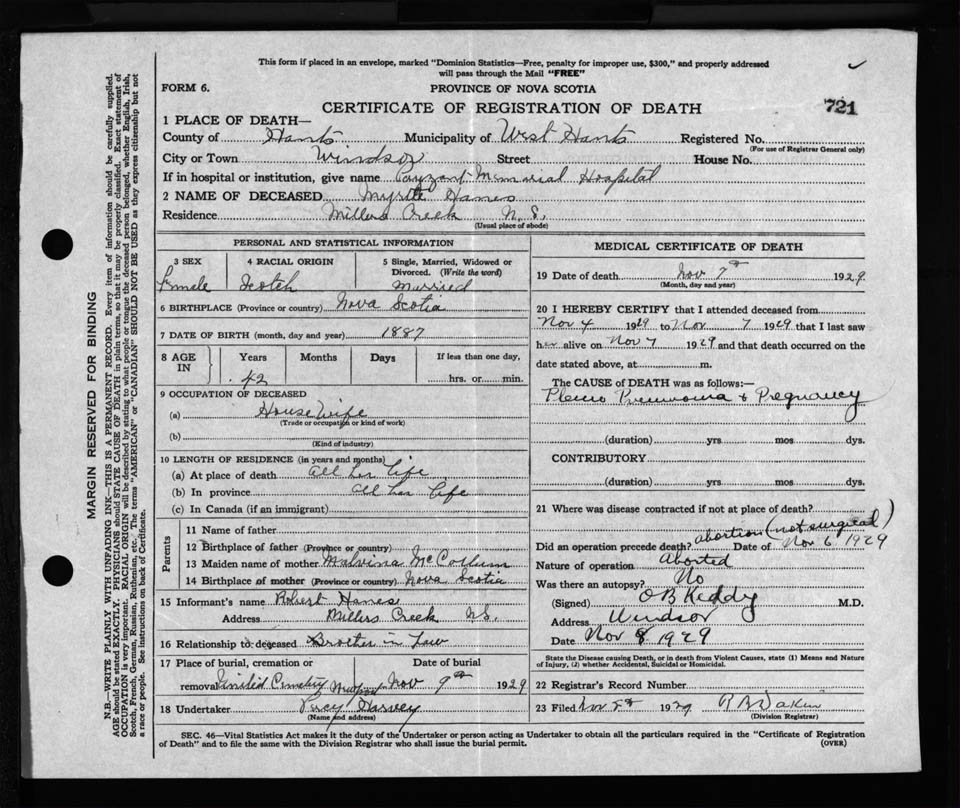 This form if placed in an envelope, marked "Dominion Statistics—Free, penalty for improper use, $300," and properly addressed
will pass through the Mail "FREE"
FORM 6.
PROVINCE OF NOVA SCOTIA
CERTIFICATE OF REGISTRATION OF DEATH
721
1 PLACE OF DEATH—
County of Hants Municipality of West Hants Registered No.
(For use of Registrar General only)
City or Town Windsor Street House No.
If in hospital or institution, give name Payzant Memorial Hospital
2 NAME OF DECEASED Myrtle Hanes
Residence Millers Creek N.S.
(Usual place of abode)
PERSONAL AND STATISTICAL INFORMATION
3 SEX 4 RACIAL ORIGIN 5 Single, Married, Widowed or
Divorced. (Write the word)
Female Scotch Married
6 BIRTHPLACE (Province or country) Nova Scotia
7 DATE OF BIRTH (month, day and year) 1887
8 AGE IN Years Months Days If less than one day,
42 hrs. or min.
9 OCCUPATION OF DECEASED
(a) House Wife
(Trade or occupation or kind of work)
(b)
(Kind of industry)
10 LENGTH OF RESIDENCE (in years and months)
(a) At place of death all her life
(b) In province all her life
(c) In Canada (if an immigrant)
Parents
11 Name of father
12 Birthplace of father (Province or country)
13 Maiden name of mother Malvina McCollum
14 Birthplace of mother (Province or country) Nova Scotia
15 Informant's name Robert Hanes
Address Millers Creek N.S.
16 Relationship to deceased Brother in Law
17 Place of burial, cremation or Date of burial
removal United Cemetery Nov 9th 1929
18 Undertaker Percy Harvey
(Name and address)
MEDICAL CERTIFICATE OF DEATH
19 Date of death Nov 7th 1929
(Month, day and year)
20 I HEREBY CERTIFY that I attended deceased from
Nov 4 1929 to Nov 7 1929 that I last saw
her alive on Nov 7 1929 and that death occurred on the
date stated above, at m.
The CAUSE OF DEATH was as follows:—
Pleuro Pneumonia & Pregnancy
(duration) yrs mos dys.
CONTRIBUTORY
(duration) yrs. mos. dys.
21 Where was disease contracted if not at place of death?
Did an operation precede death? abortion (not surgical) Date of Nov 6 1929
Nature of operation Aborted
Was there an autopsy? No
(Signed) O B Keddy M.D.
Address Windsor
Date Nov 8 1929
State the Disease causing Death, or in death from Violent Causes, state (1) Means and Nature
of Injury, (2) whether Accidental, Suicidal or Homicidal.
22 Registrar's Record Number
23 Filed Nov 1929
(Division Registrar)
SEC. 46—Vital Statistics Act makes it the duty of the Undertaker or person acting as Undertaker to obtain all the particulars required in the "Certificate of Registration
of Death" and to file the same with the Division Registrar who shall issue the burial permit. (OVER)
MARGIN RESERVED FOR BINDING
N.B.—WRITE PLAINLY WITH UNFADING INK—THIS IS A PERMANENT RECORD. Every item of information should be carefully supplied.
AGE should be stated EXACTLY. PHYSICIANS should STATE CAUSE OF DEATH in plain terms, so that it may be properly classified. Exact statement of
OCCUPATION is very important. RACIAL ORIGIN will be described by stating to what people or tongue the deceased person belonged, whether English, Irish,
Scotch, French, German, Russian, Ruthenian, etc. The terms "AMERICAN" or "CANADIAN" SHOULD NOT BE USED as they express citizenship but not
a race or people. See instructions on back of Certificate.